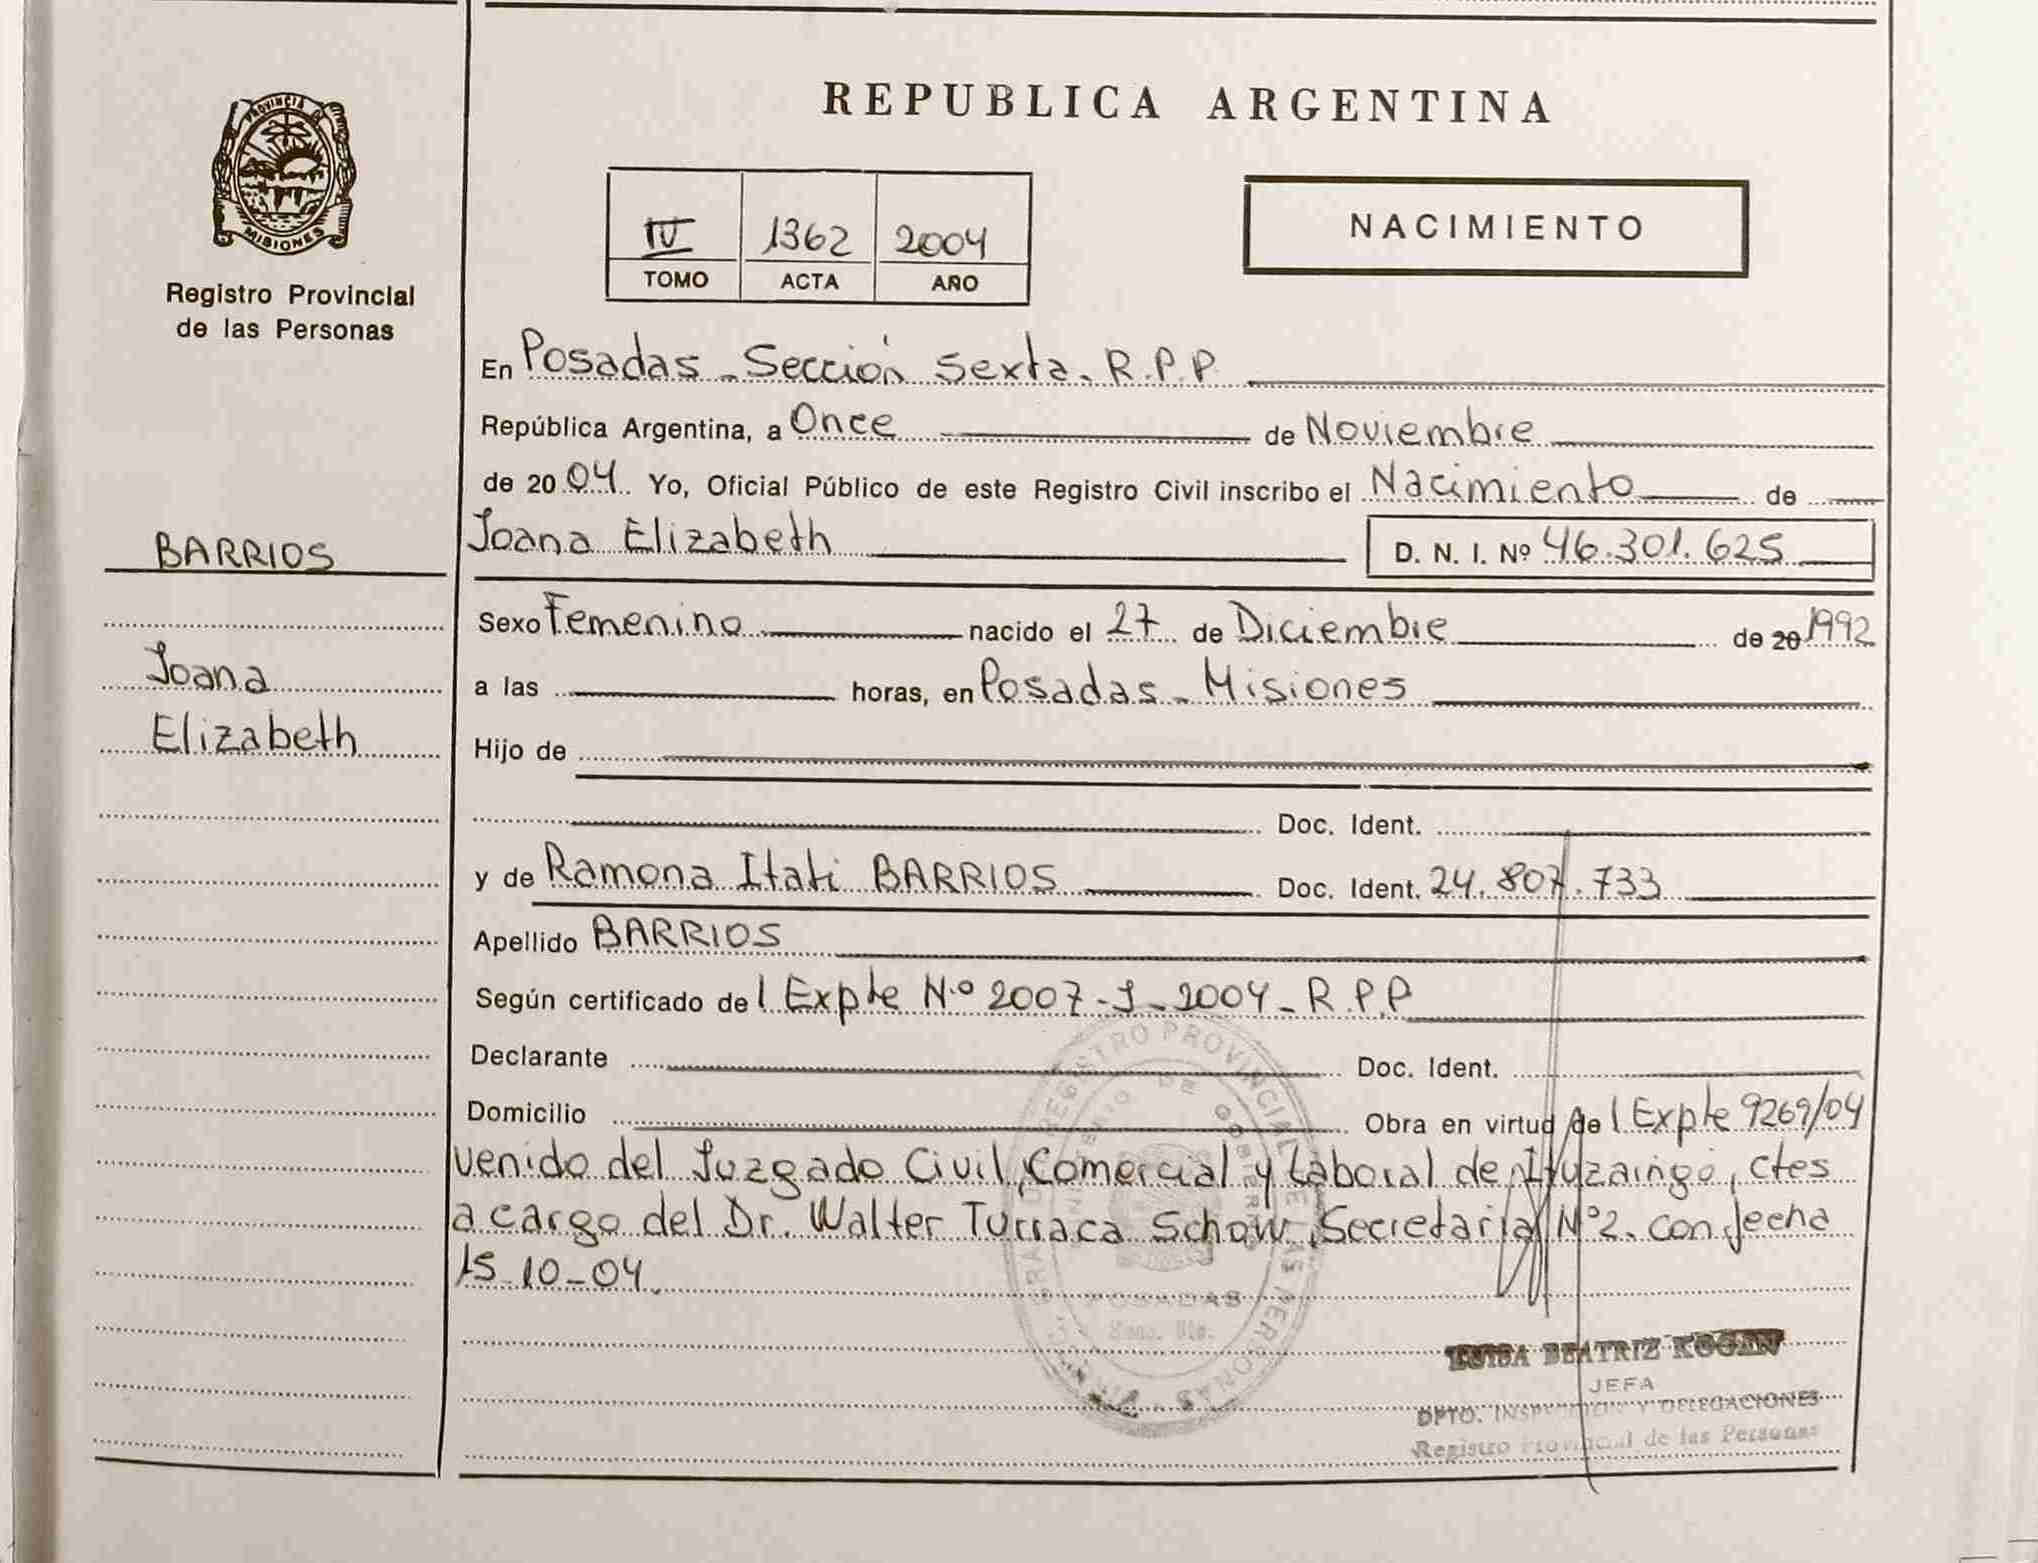 REPUBLICA ARGENTINA
PROVINCIA DE
MISIONES
Registro Provincial
de las Personas
IV 1362 2004
TOMO ACTA AÑO
NACIMIENTO
En Posadas - Sección Sexta. R.P.P
República Argentina, a Once de Noviembre
de 2004. Yo, Oficial Público de este Registro Civil inscribo el Nacimiento de
Joana Elizabeth D. N. I. Nº 46.301.625
BARRIOS
Joana
Elizabeth
Sexo Femenino nacido el 27 de Diciembre de 20 1992
a las horas, en Posadas - Misiones
Hijo de
Doc. Ident.
y de Ramona Itati BARRIOS Doc. Ident. 24.807.733
Apellido BARRIOS
Según certificado del Expte N.º 2007-J-2004-R.P.P
Declarante Doc. Ident.
Domicilio Obra en virtud del Expte 9269/04
venido del Juzgado Civil, Comercial y Laboral de Ituzaingó, Ctes
a cargo del Dr. Walter Turraca Schow, Secretaria Nº2. con fecha
15-10-04.
REGISTRO PROVINCIAL DE LAS PERSONAS
POSADAS
LUISA BEATRIZ KOGAN
JEFA
DPTO. INSPECCION Y DELEGACIONES
Registro Provincial de las Personas